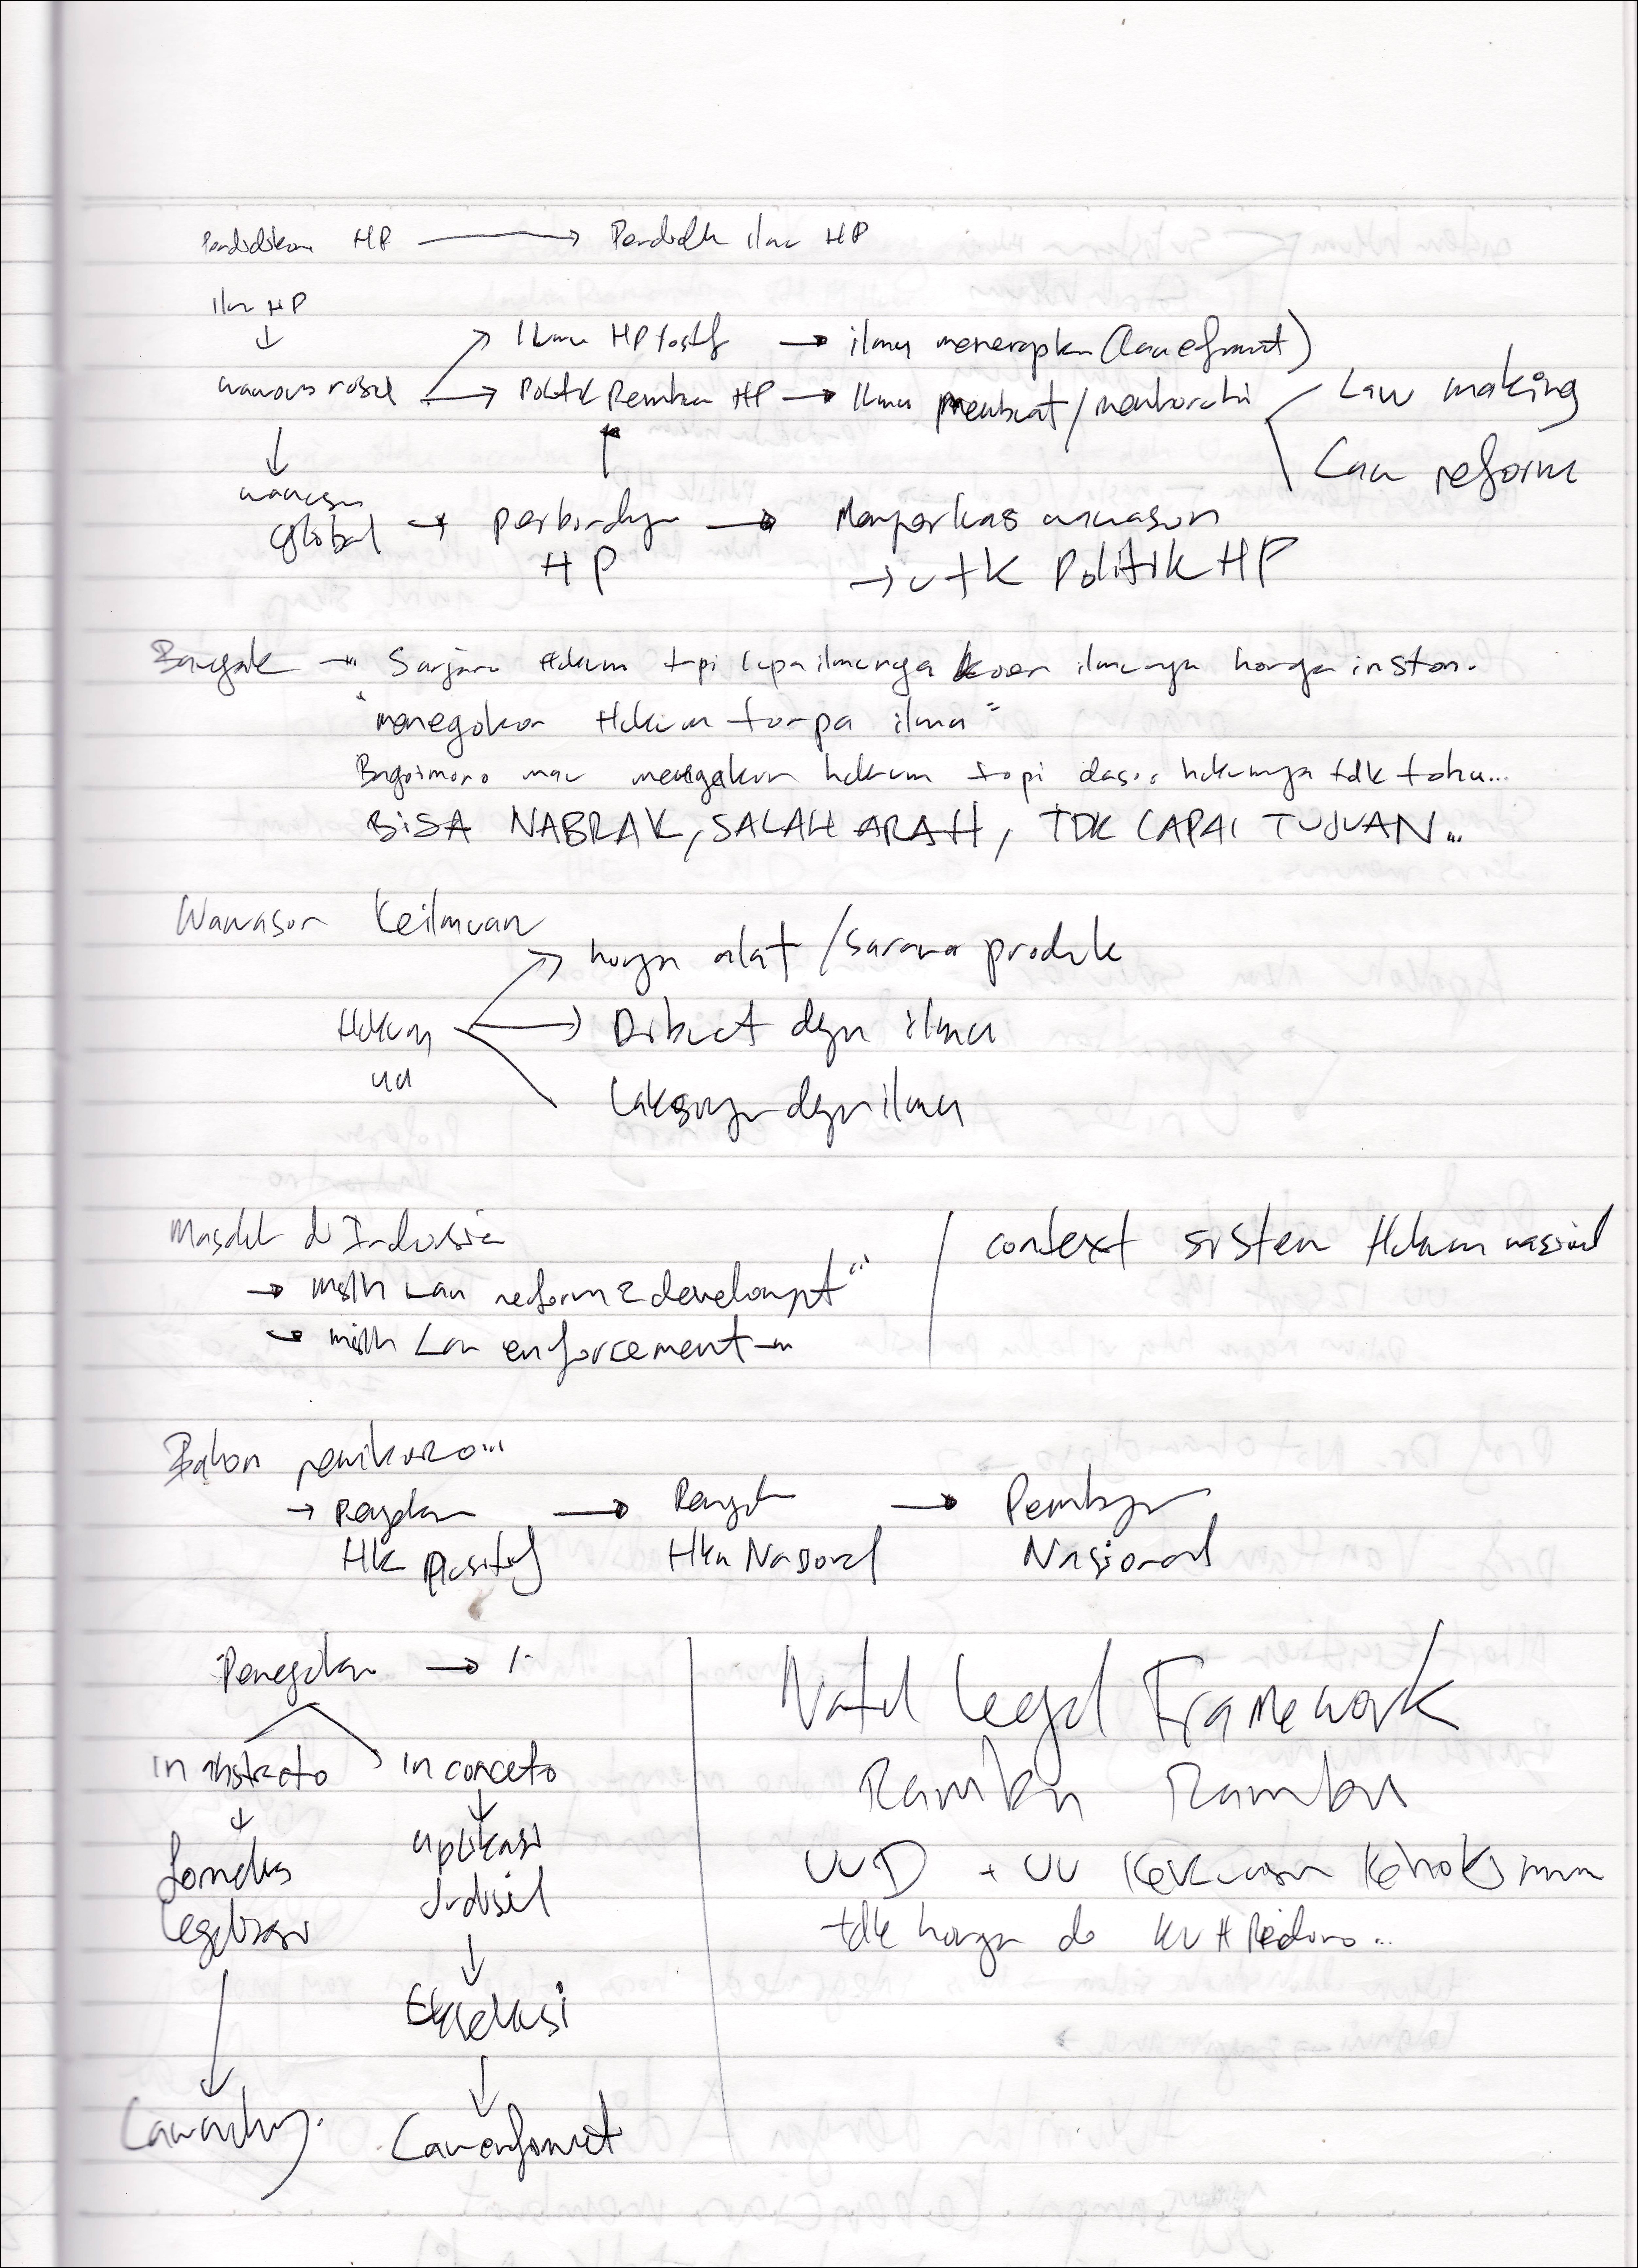 Pendidikan HP → Pendidk ilmu HP
Ilmu HP
↓
wawasan nasl → Ilmu HP Positf → ilmu menerapkan (Law efrcmt)
→ Politk Pembrn HP → Ilmu Membuat / memborohi
Law making
Law reform
↓
wawasan global → perbandgn HP → Memperluas wawasan
→ utk Politik HP
Banyak → Sarjana Hukum tapi lupa ilmunya koen ilmunya hanya instan.
"menegakan Hukum tanpa ilmu"
Bagaimana mau menegakan hukum tapi dasar hukumnya tdk tahu...
BISA NABRAK, SALAH ARAH, TDK CAPAI TUJUAN...
Wawasan Keilmuan
Hukum
UU
→ hanya alat / sarana produk
→ Dibuat dgn ilmu
Laksanan dgn ilmu
Maslh di Indonesia
→ mslh Law reform & developmt"
→ mslh Law enforcement →
context sistem Hukum nasional
Bahan pemikiran...
→ Pengakan Hk Positif → Pengk Hkm Nasional → Pembgn Nasional
Penegakan → 1.
In Abstracto
↓
formulas
Legislasi
↓
Lawmaking.
In conceto
↓
aplikasi
Judisil
↓
Eksekusi
↓
Law enforcmt
Natnl Legal Framework
Rambu Rambu
UUD + UU Kekuasan Kehakiman
tdk hanya do KUH Pidana...